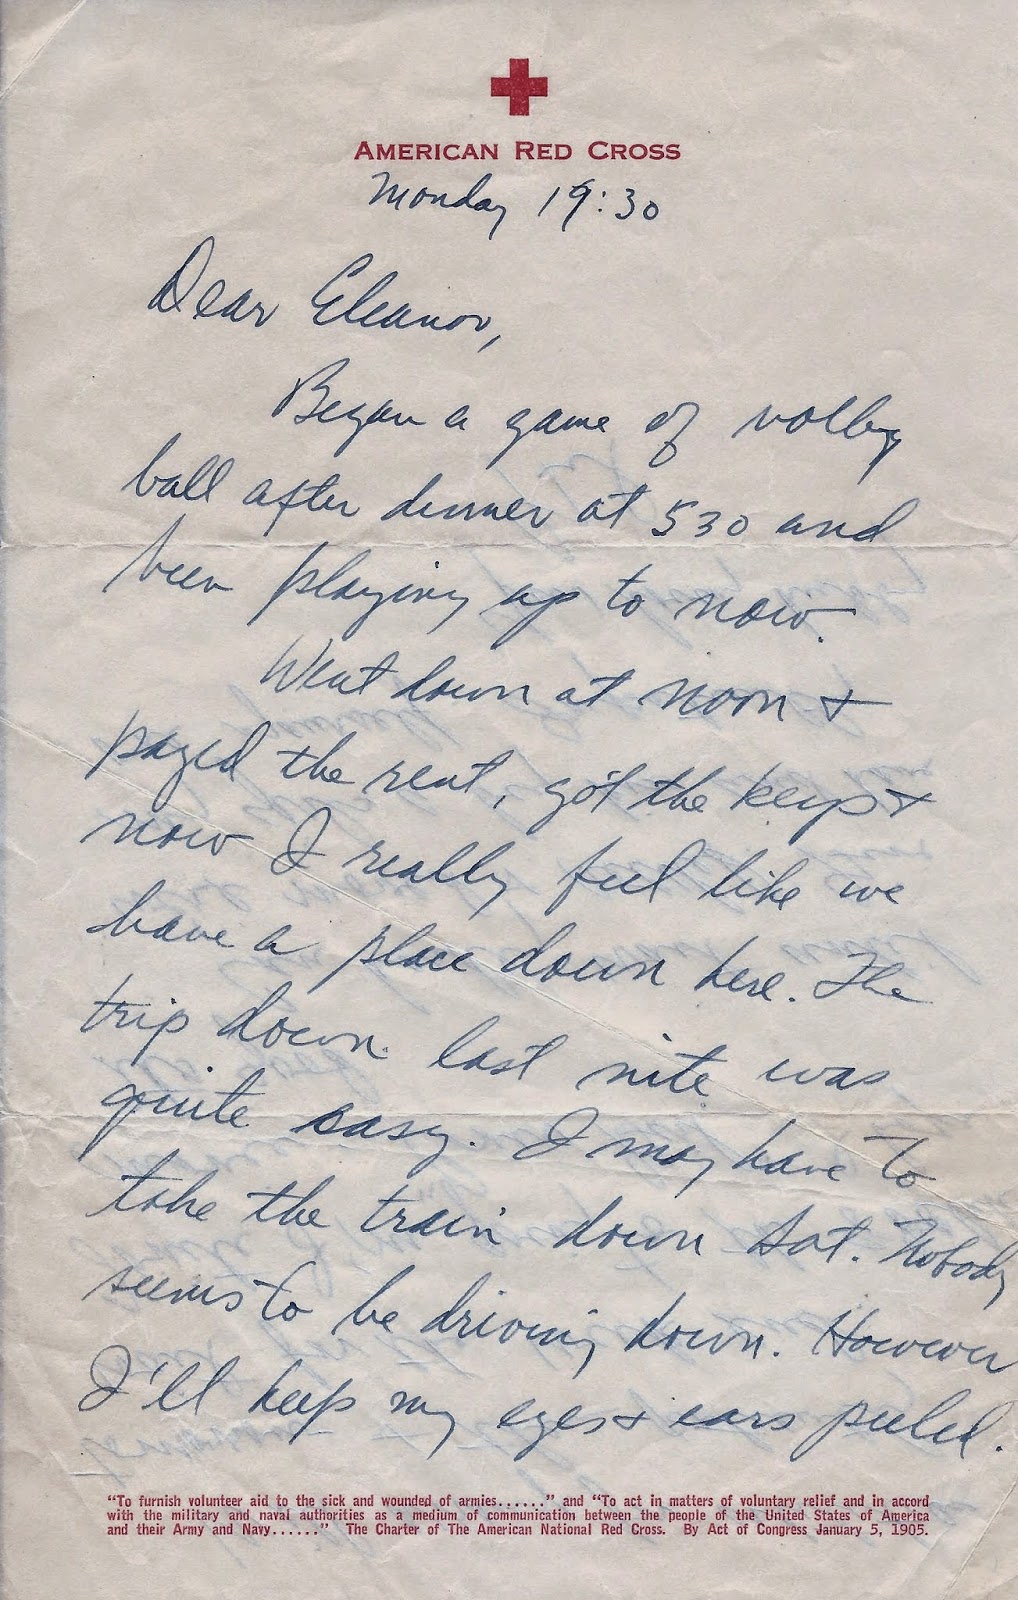 AMERICAN RED CROSS
Monday 19:30
Dear Eleanor,
Began a game of volley
ball after dinner at 530 and
been playing up to now.
Went down at noon +
payed the rent, got the keys +
now I really feel like we
have a place down here. The
trip down last nite was
quite easy. I may have to
take the train down Sat. Nobody
seems to be driving down. However
I'll keep my eyes + ears peeled.
"To furnish volunteer aid to the sick and wounded of armies......" and "To act in matters of voluntary relief and in accord
with the military and naval authorities as a medium of communication between the people of the United States of America
and their Army and Navy......" The Charter of The American National Red Cross. By Act of Congress January 5, 1905.